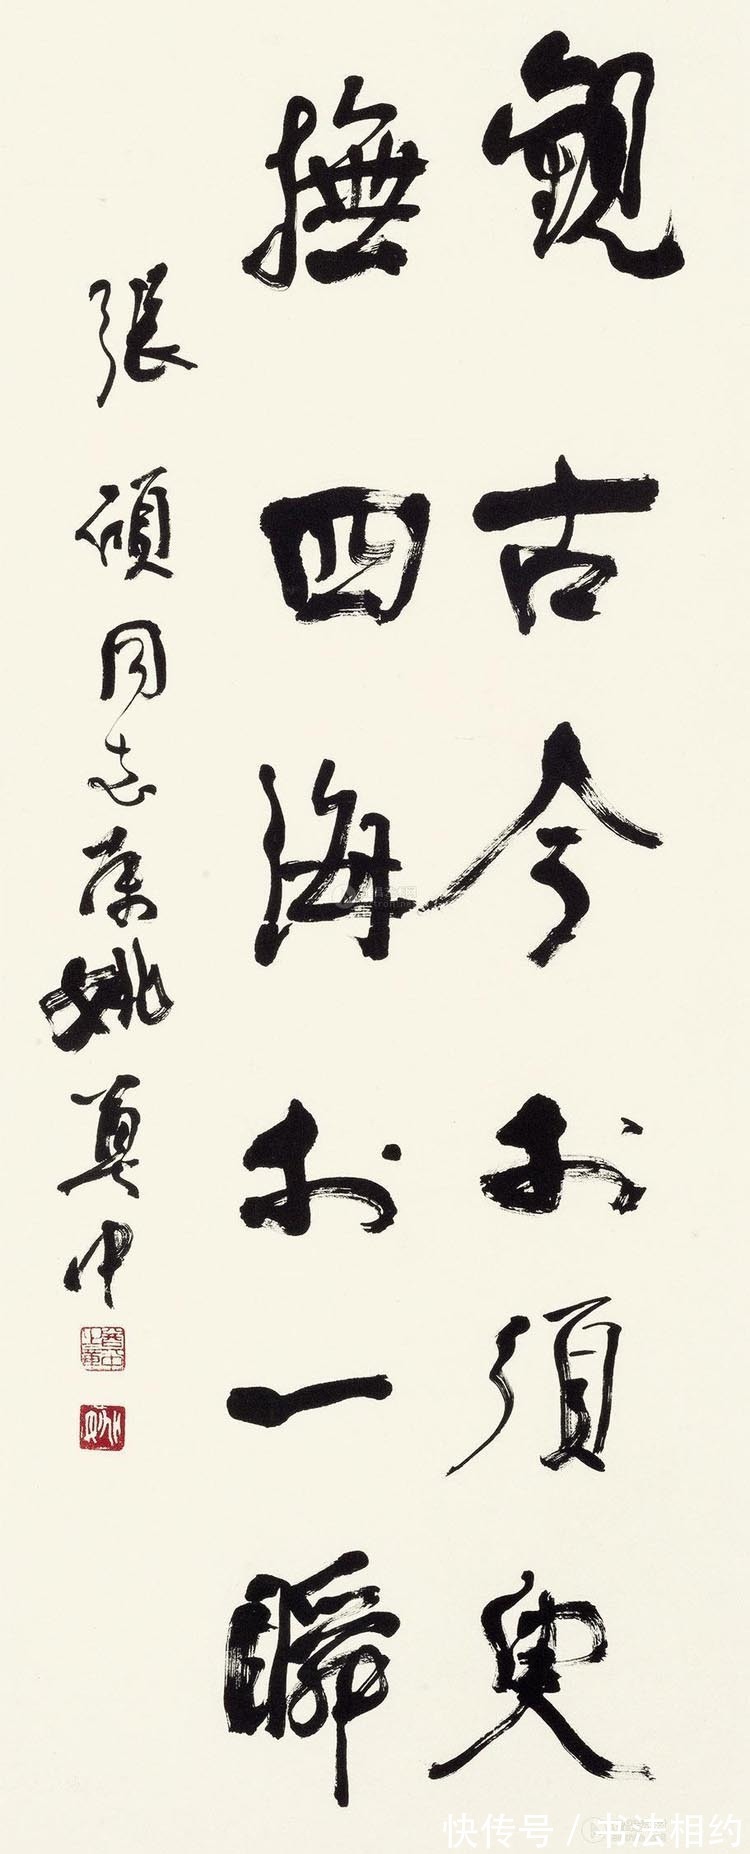 觀古今於須臾
撫四海於一瞬
張碩同志屬姚奠中
快传号 / 书法相约